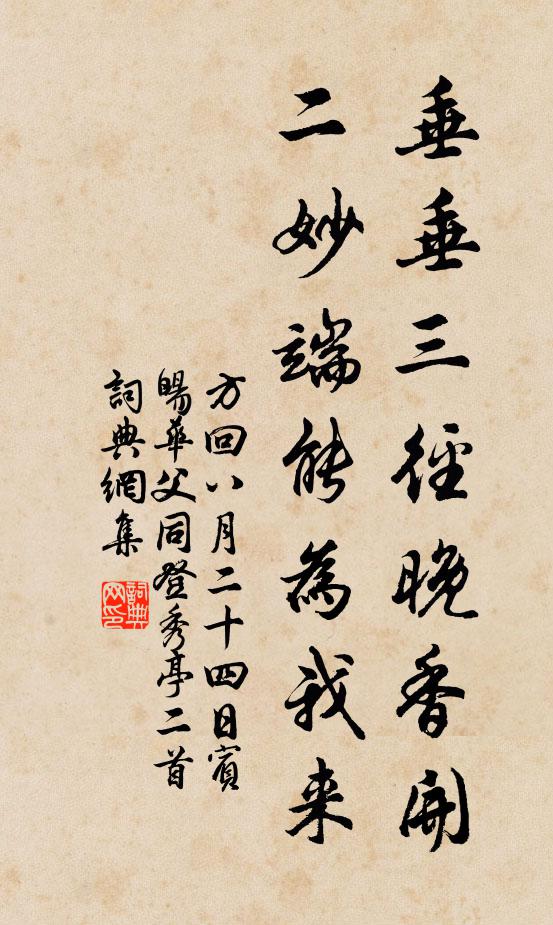 垂垂三徑晚香開
二妙端能為我来
方回八月二十四日賓
暘華父同登秀亭二首
詞典網集
詞典
网印